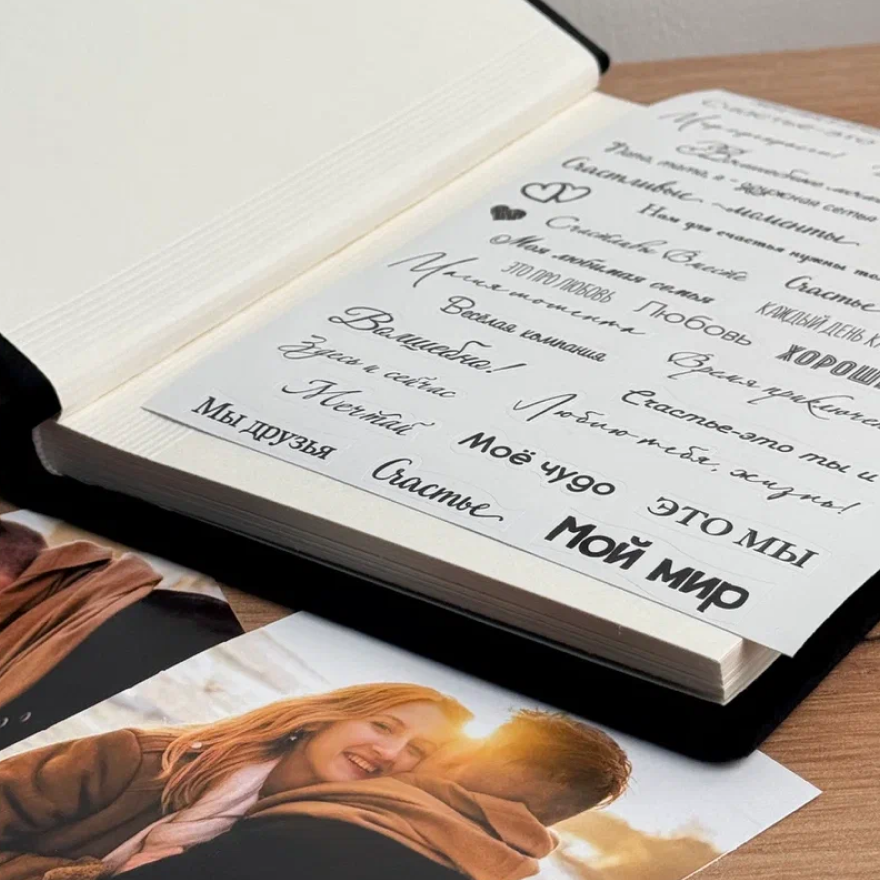 Счастье-это
Волшебные
Папа, мама, я - дружная семья
Счастливые моменты
Нам для счастья нужны
Счастливы Вместе
Моя любимая семья
Счастье
ЭТО ПРО ЛЮБОВЬ
Любовь
КАЖДЫЙ ДЕНЬ
Милые моменты
Весёлая компания
ХОРОШ
Волшебно!
Время приключе
Здесь и сейчас
Счастье-это ты и
Мечтай
Люблю тебя, жизнь!
Мы друзья
Моё чудо
Счастье
ЭТО МЫ
Мой мир